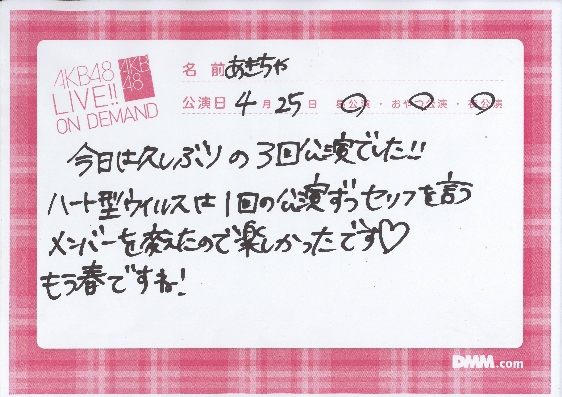 AKB48
LIVE!!
ON DEMAND
AKB
48
名 前 あきちゃ
公演日 4月 25日 昼公演・おやつ公演・夜公演
今日は久しぶりの3回公演でした!!
ハート型ウイルスは1回の公演ずつセリフを言う
メンバーを変えたので楽しかったです♡
もう春ですね!
DMM.com